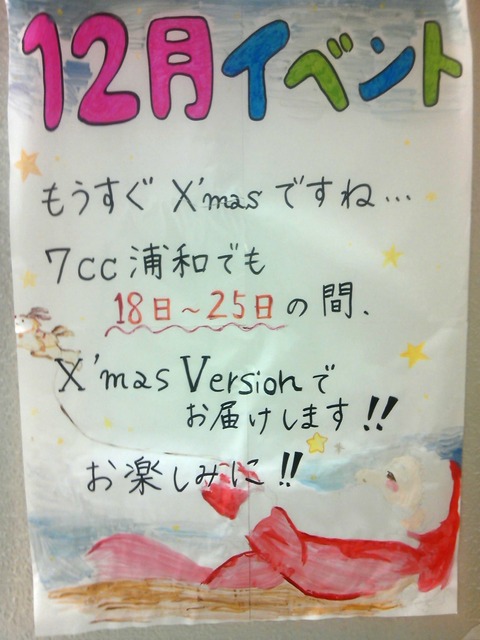 12月イベント
もうすぐ X'masですね…
7cc浦和でも
18日～25日の間、
X'mas Versionで
お届けします!!
お楽しみに!!